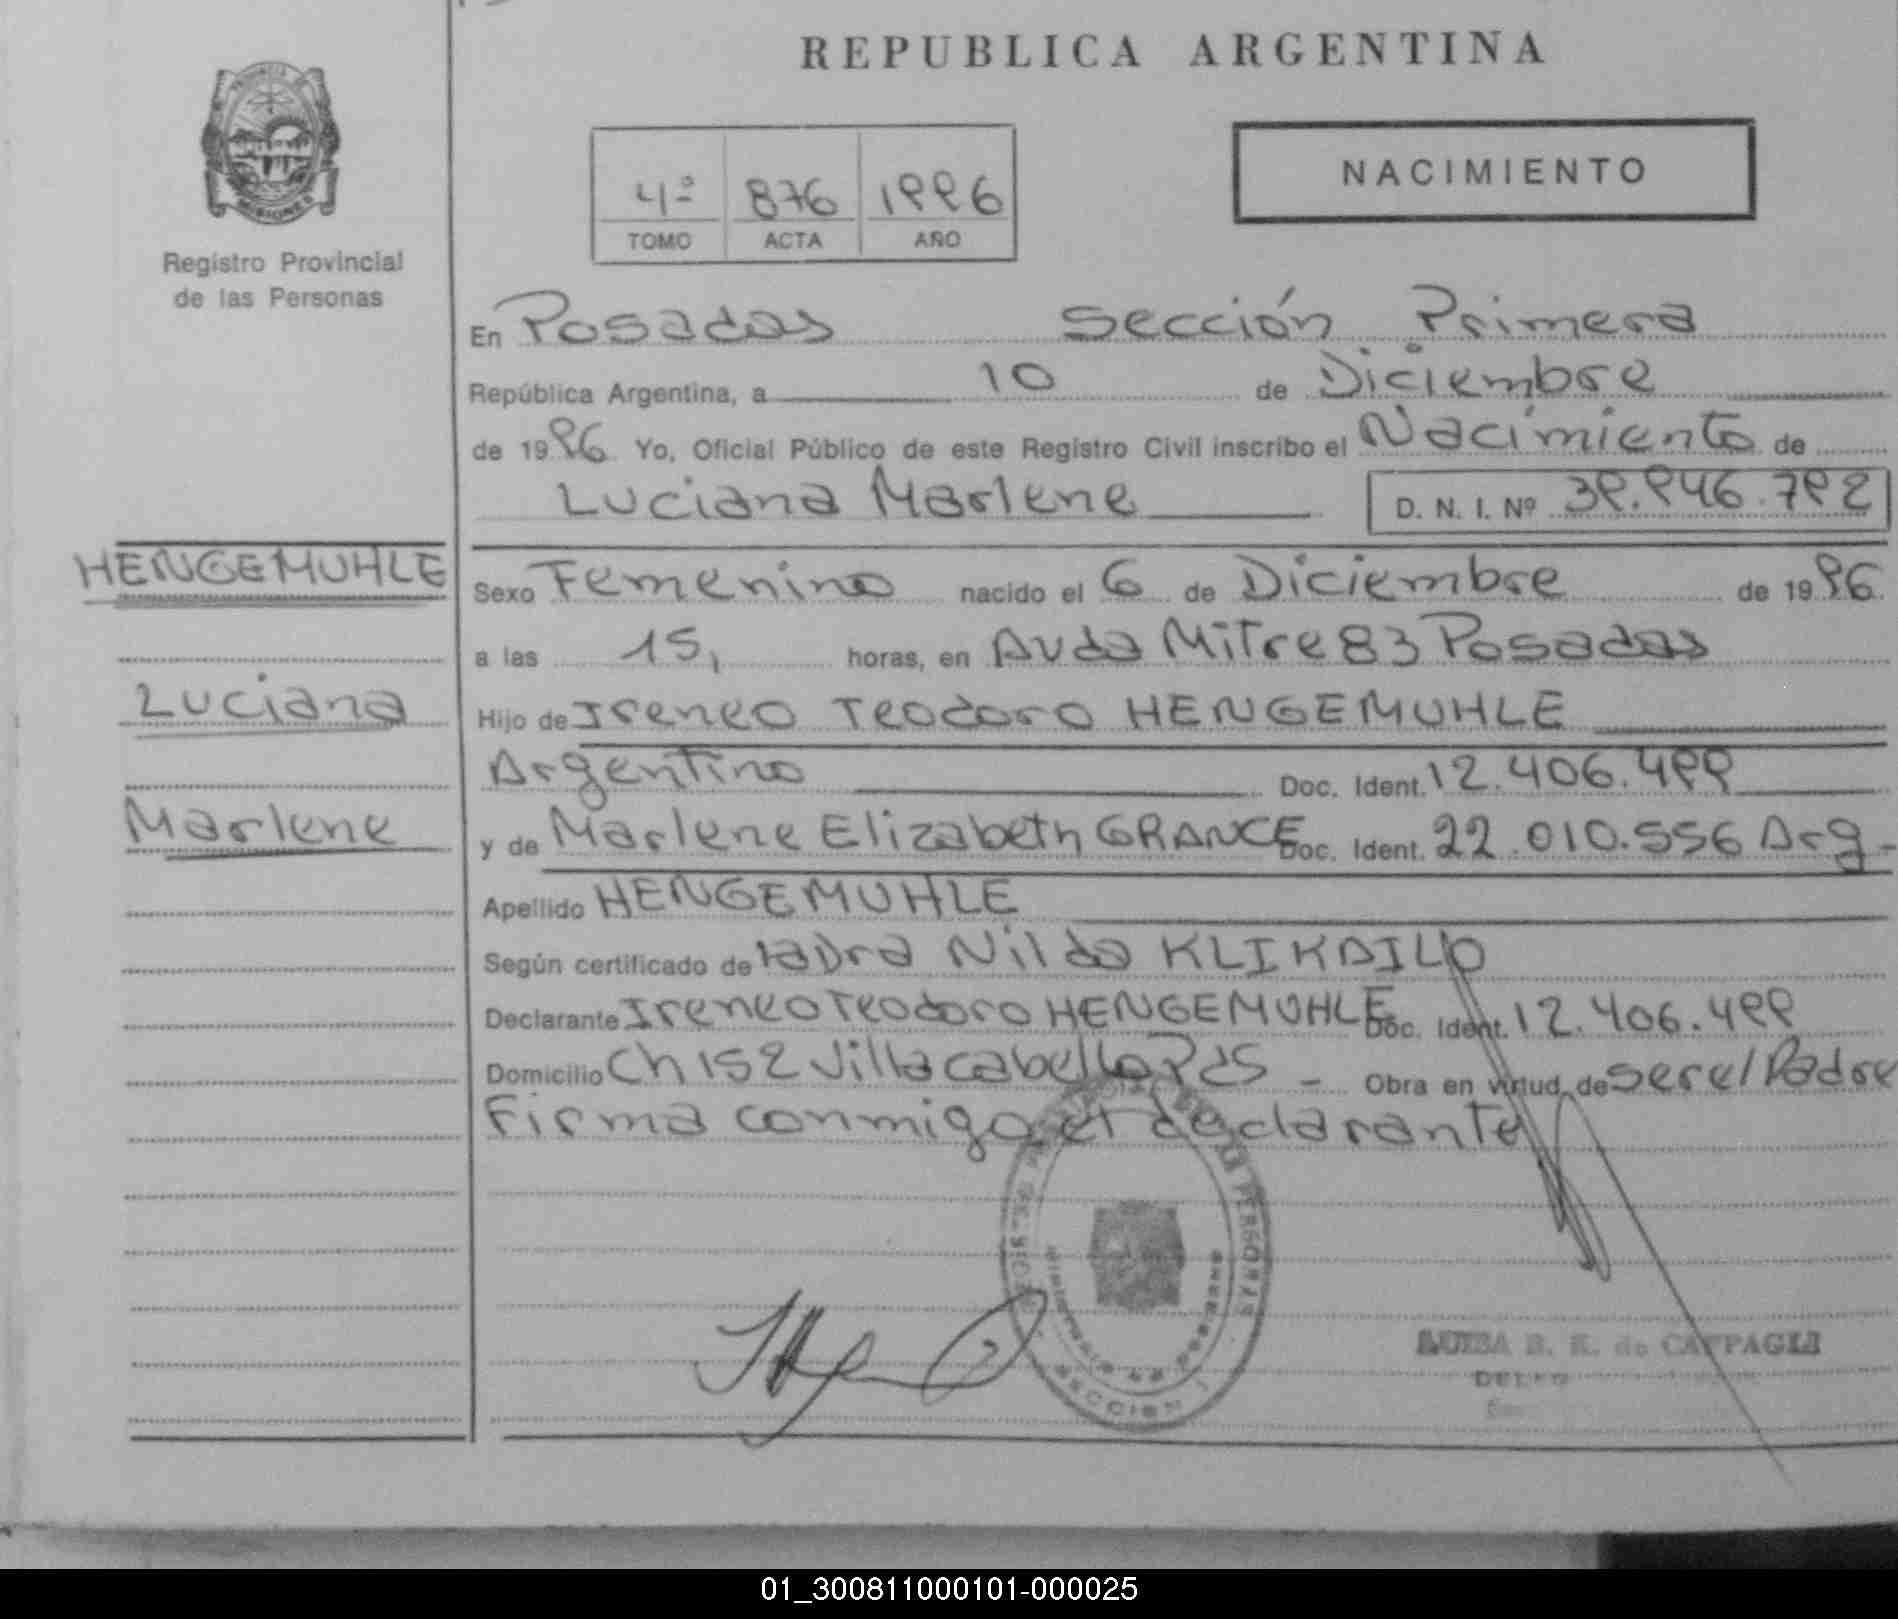 REPUBLICA ARGENTINA
PROVINCIA
MISIONES
Registro Provincial
de las Personas
4º 876 1996
TOMO ACTA AÑO
NACIMIENTO
En Posadas Sección Primera
República Argentina, a 10 de Diciembre
de 1996 Yo, Oficial Público de este Registro Civil inscribo el Nacimiento de
Luciana Marlene D. N. I. Nº 39.946.792
HENGEMUHLE
Luciana
Marlene
Sexo Femenino nacido el 6 de Diciembre de 1996.
a las 15, horas, en Avda Mitre 83 Posadas
Hijo de Ireneo Teodoro HENGEMUHLE
Argentino Doc. Ident. 12.406.499
y de Marlene Elizabeth GRANCE Doc. Ident. 22.010.556 Arg-
Apellido HENGEMUHLE
Según certificado de la Dra Nilda
Declarante Ireneo Teodoro HENGEMUHLE Doc. Ident. 12.406.499
Domicilio Ch 152 Villa cabello Pdas - Obra en virtud de ser el Padre
Firma conmigo el declarante
SECCION
LUISA B. K. de
01_300811000101-000025